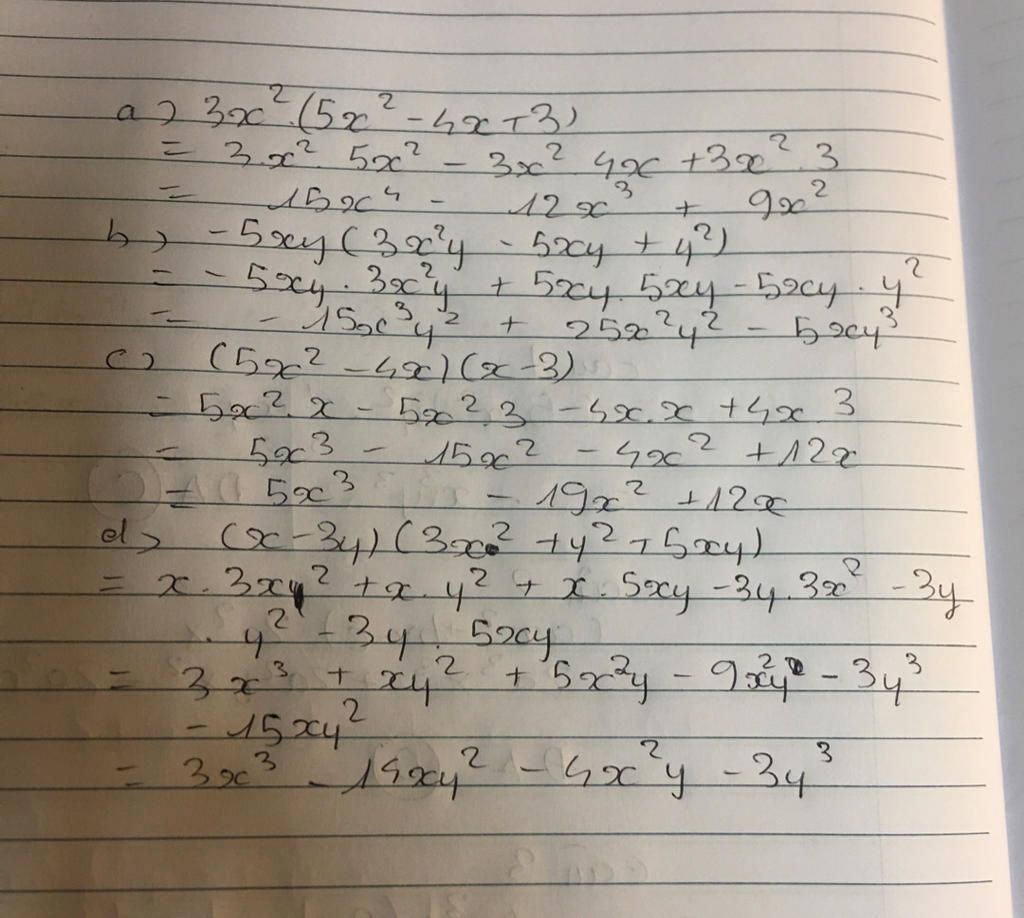 a) 3x².(5x² - 4x + 3)
= 3.x². 5x² - 3x². 4x + 3x². 3
= 15x⁴ - 12x³ + 9x²
b) -5xy(3x²y - 5xy + y²)
= - 5xy. 3x²y + 5xy. 5xy - 5xy. y²
= - 15x³y² + 25x²y² - 5xy³
c) (5x² - 4x)(x - 3)
= 5x². x - 5x². 3 - 4x. x + 4x. 3
= 5x³ - 15x² - 4x² + 12x
= 5x³ - 19x² + 12x
d) (x - 3y)(3x² + y² + 5xy)
= x. 3x² + x. y² + x. 5xy - 3y. 3x² - 3y
. y² - 3y. 5xy
= 3x³ + xy² + 5x²y - 9x²y - 3y³
- 15xy²
= 3x³ - 14xy² - 4x²y - 3y³